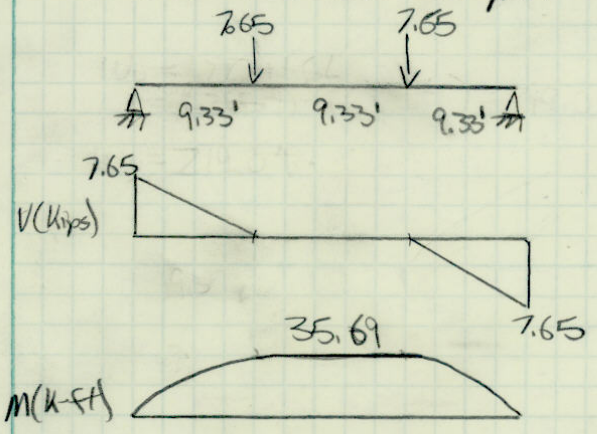 7.65 7.65
9.33' 9.33' 9.33'
7.65
V(Kips)
7.65
35.69
M(K-ft)